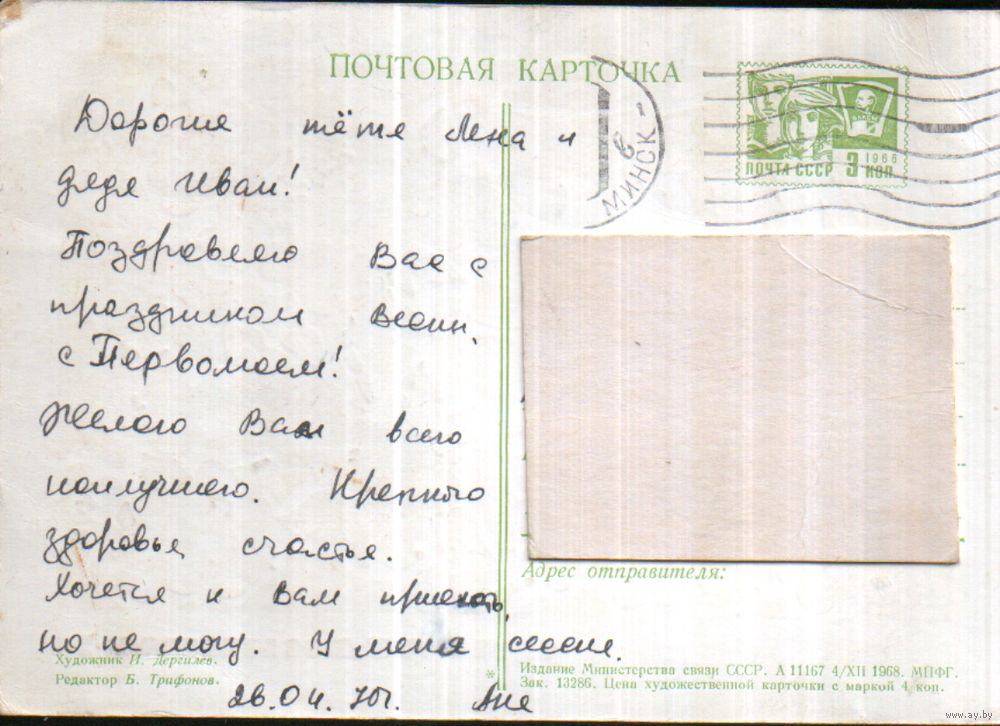 ПОЧТОВАЯ КАРТОЧКА
МИНСК
ВЛКСМ
1966
ПОЧТА СССР 3 КОП
Дорогие тётя Лена и
дядя Иван!
Поздравляю Вас с
праздником весны,
с Первомаем!
Желаю Вам всего
наилучшего. Крепкого
здоровья, счастья.
Хочется к вам приехать,
но не могу. У меня сессия.
26.04.70г. Аня
Адрес отправителя:
Художник И. Дергилев.
Редактор Б. Трифонов.
* Издание Министерства связи СССР. А 11167 4/XII 1968. МПФГ.
Зак. 13286. Цена художественной карточки с маркой 4 коп.
www.ay.by